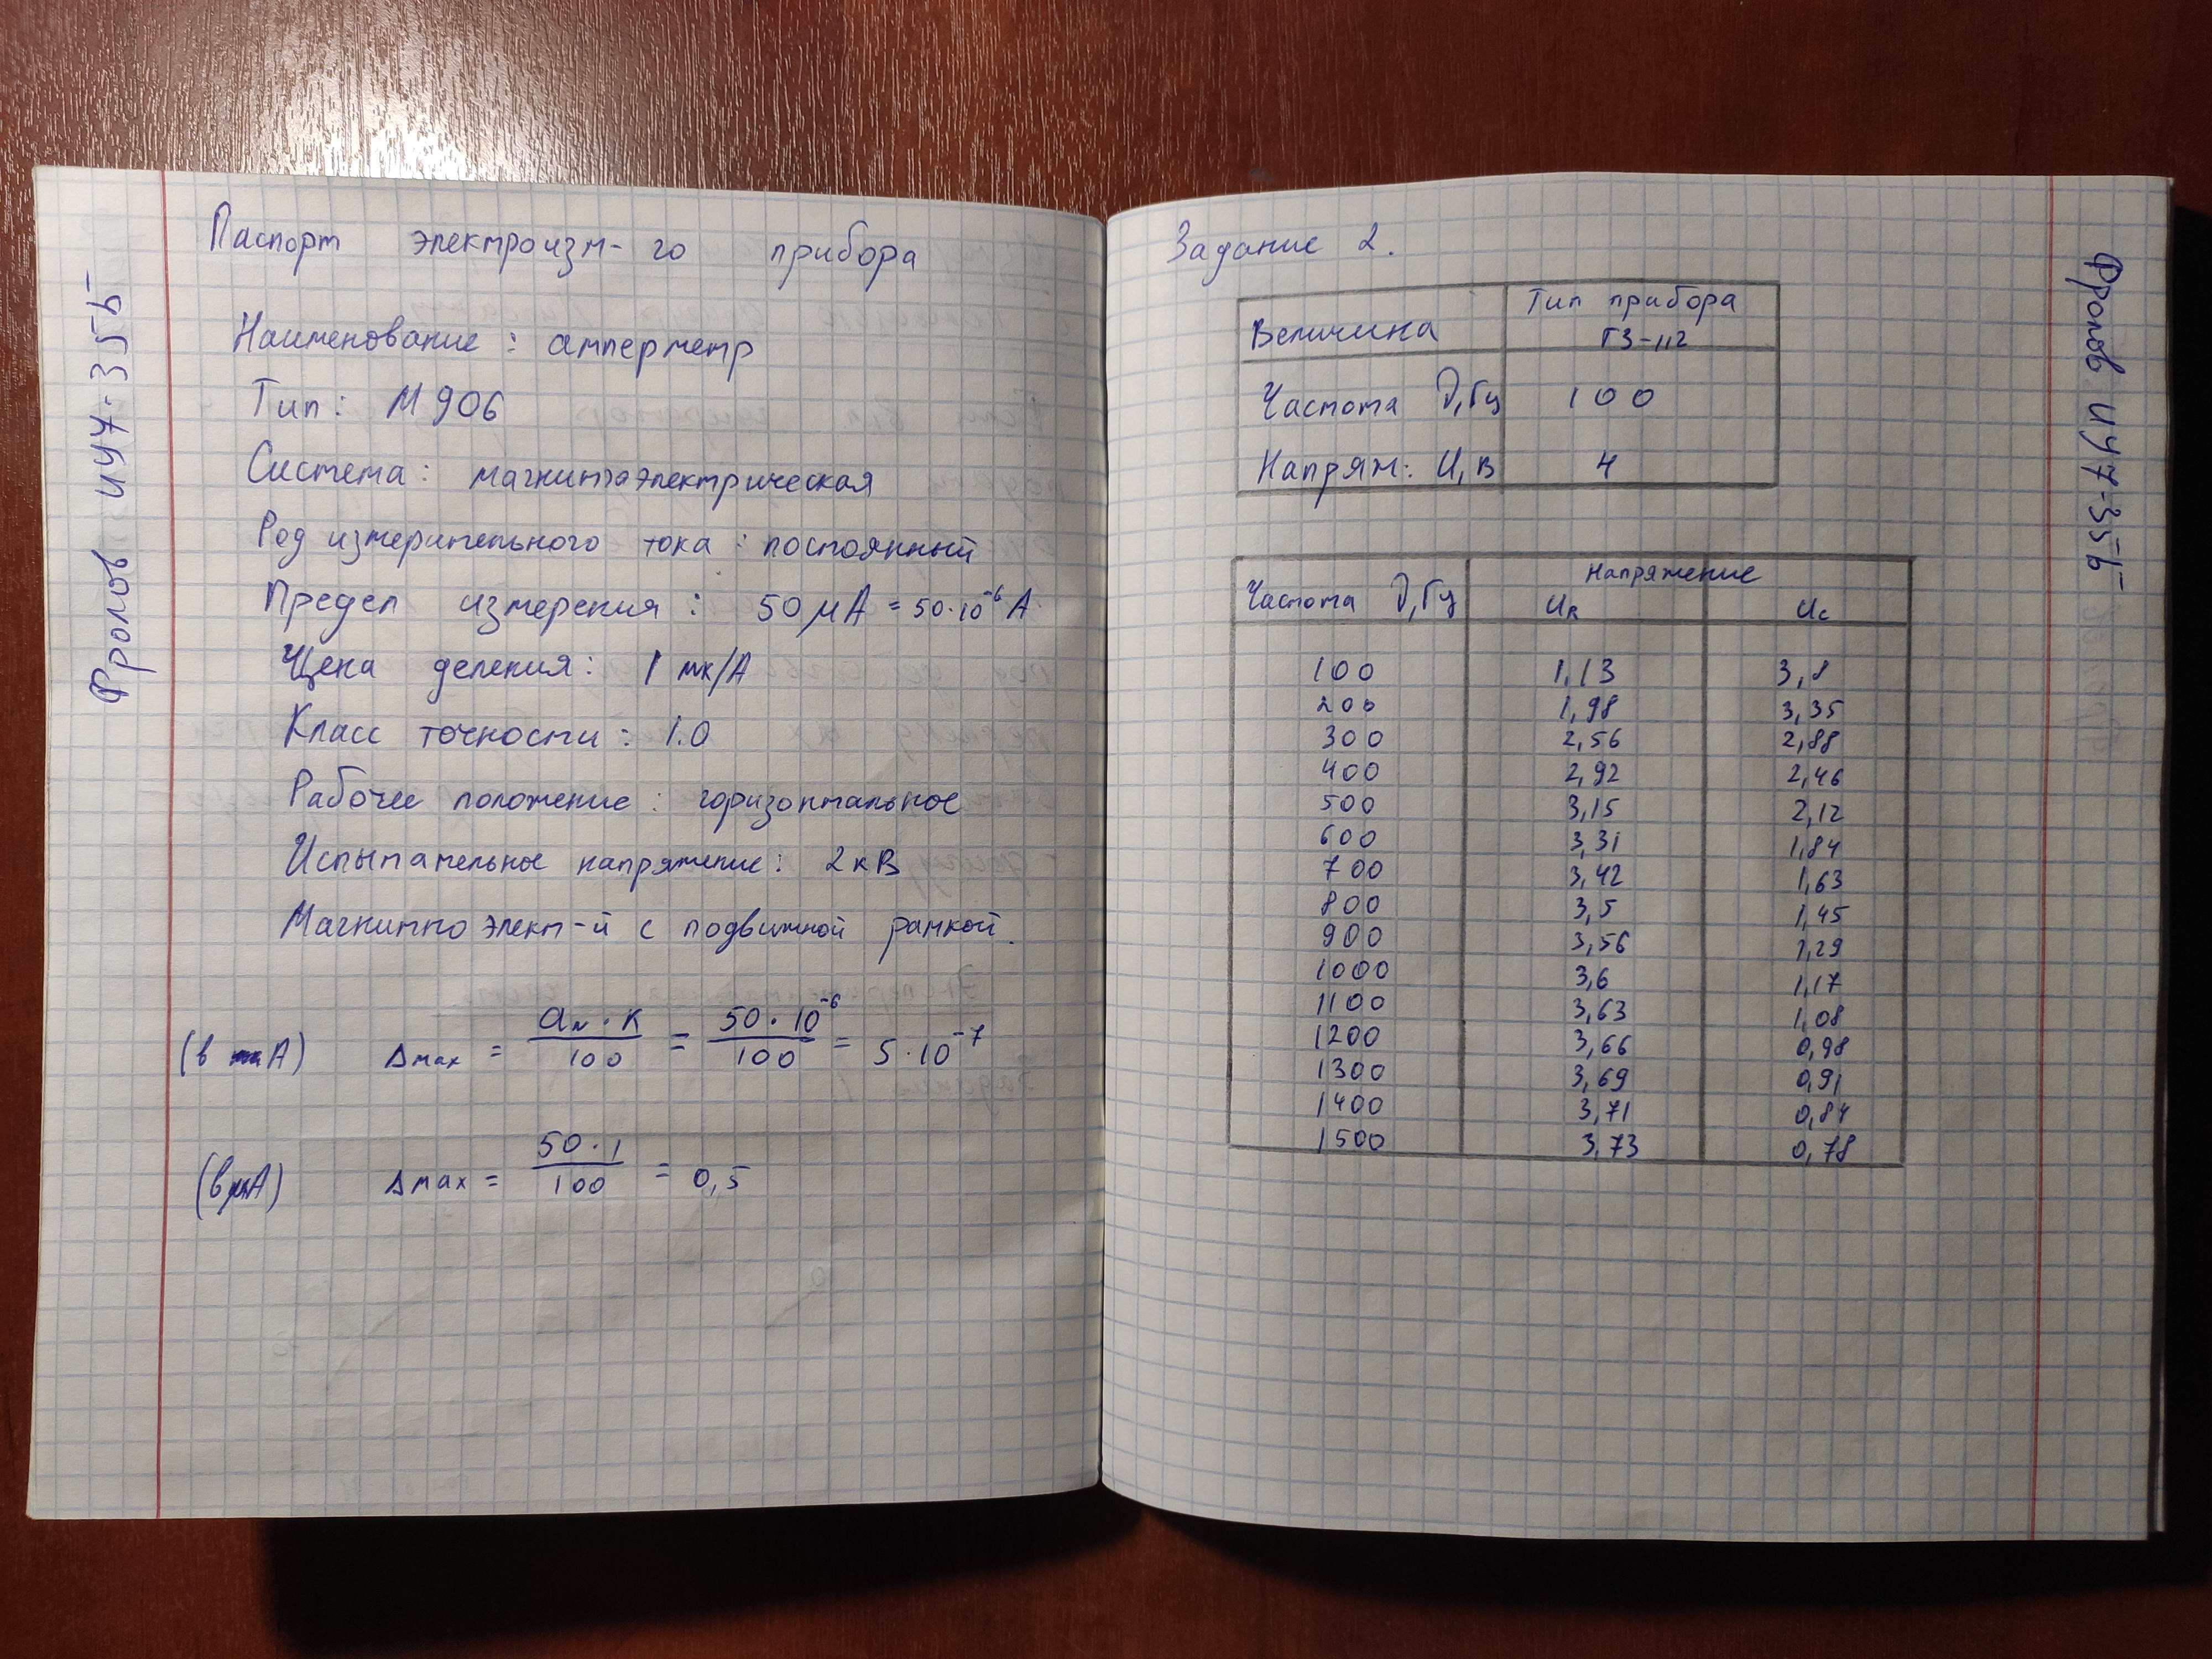 Фролов ИУ7-35Б
Паспорт электроизм-го прибора
Наименование: амперметр
Тип: М906
Система: магнитоэлектрическая
Род измерительного тока: постоянный
Предел измерения: 50 μA = 50·10⁻⁶ A
Цена деления: 1 мк/А
Класс точности: 1.0
Рабочее положение: горизонтальное
Испытательное напряжение: 2кВ
Магнитноэлект-й с подвижной рамкой.
(в А) Δmax = aN·K/100 = 50·10⁻⁶/100 = 5·10⁻⁷
(в μА) Δmax = 50·1/100 = 0,5
Фролов ИУ7-35Б
Задание 2.
Величина Тип прибора Г3-112
Частота ν,Гц 100
Напряж: U,В 4
Частота ν,Гц Напряжение
UR Uc
100 1,13 3,8
200 1,98 3,35
300 2,56 2,88
400 2,92 2,46
500 3,15 2,12
600 3,31 1,84
700 3,42 1,63
800 3,5 1,45
900 3,56 1,29
1000 3,6 1,17
1100 3,63 1,08
1200 3,66 0,98
1300 3,69 0,91
1400 3,71 0,84
1500 3,73 0,78